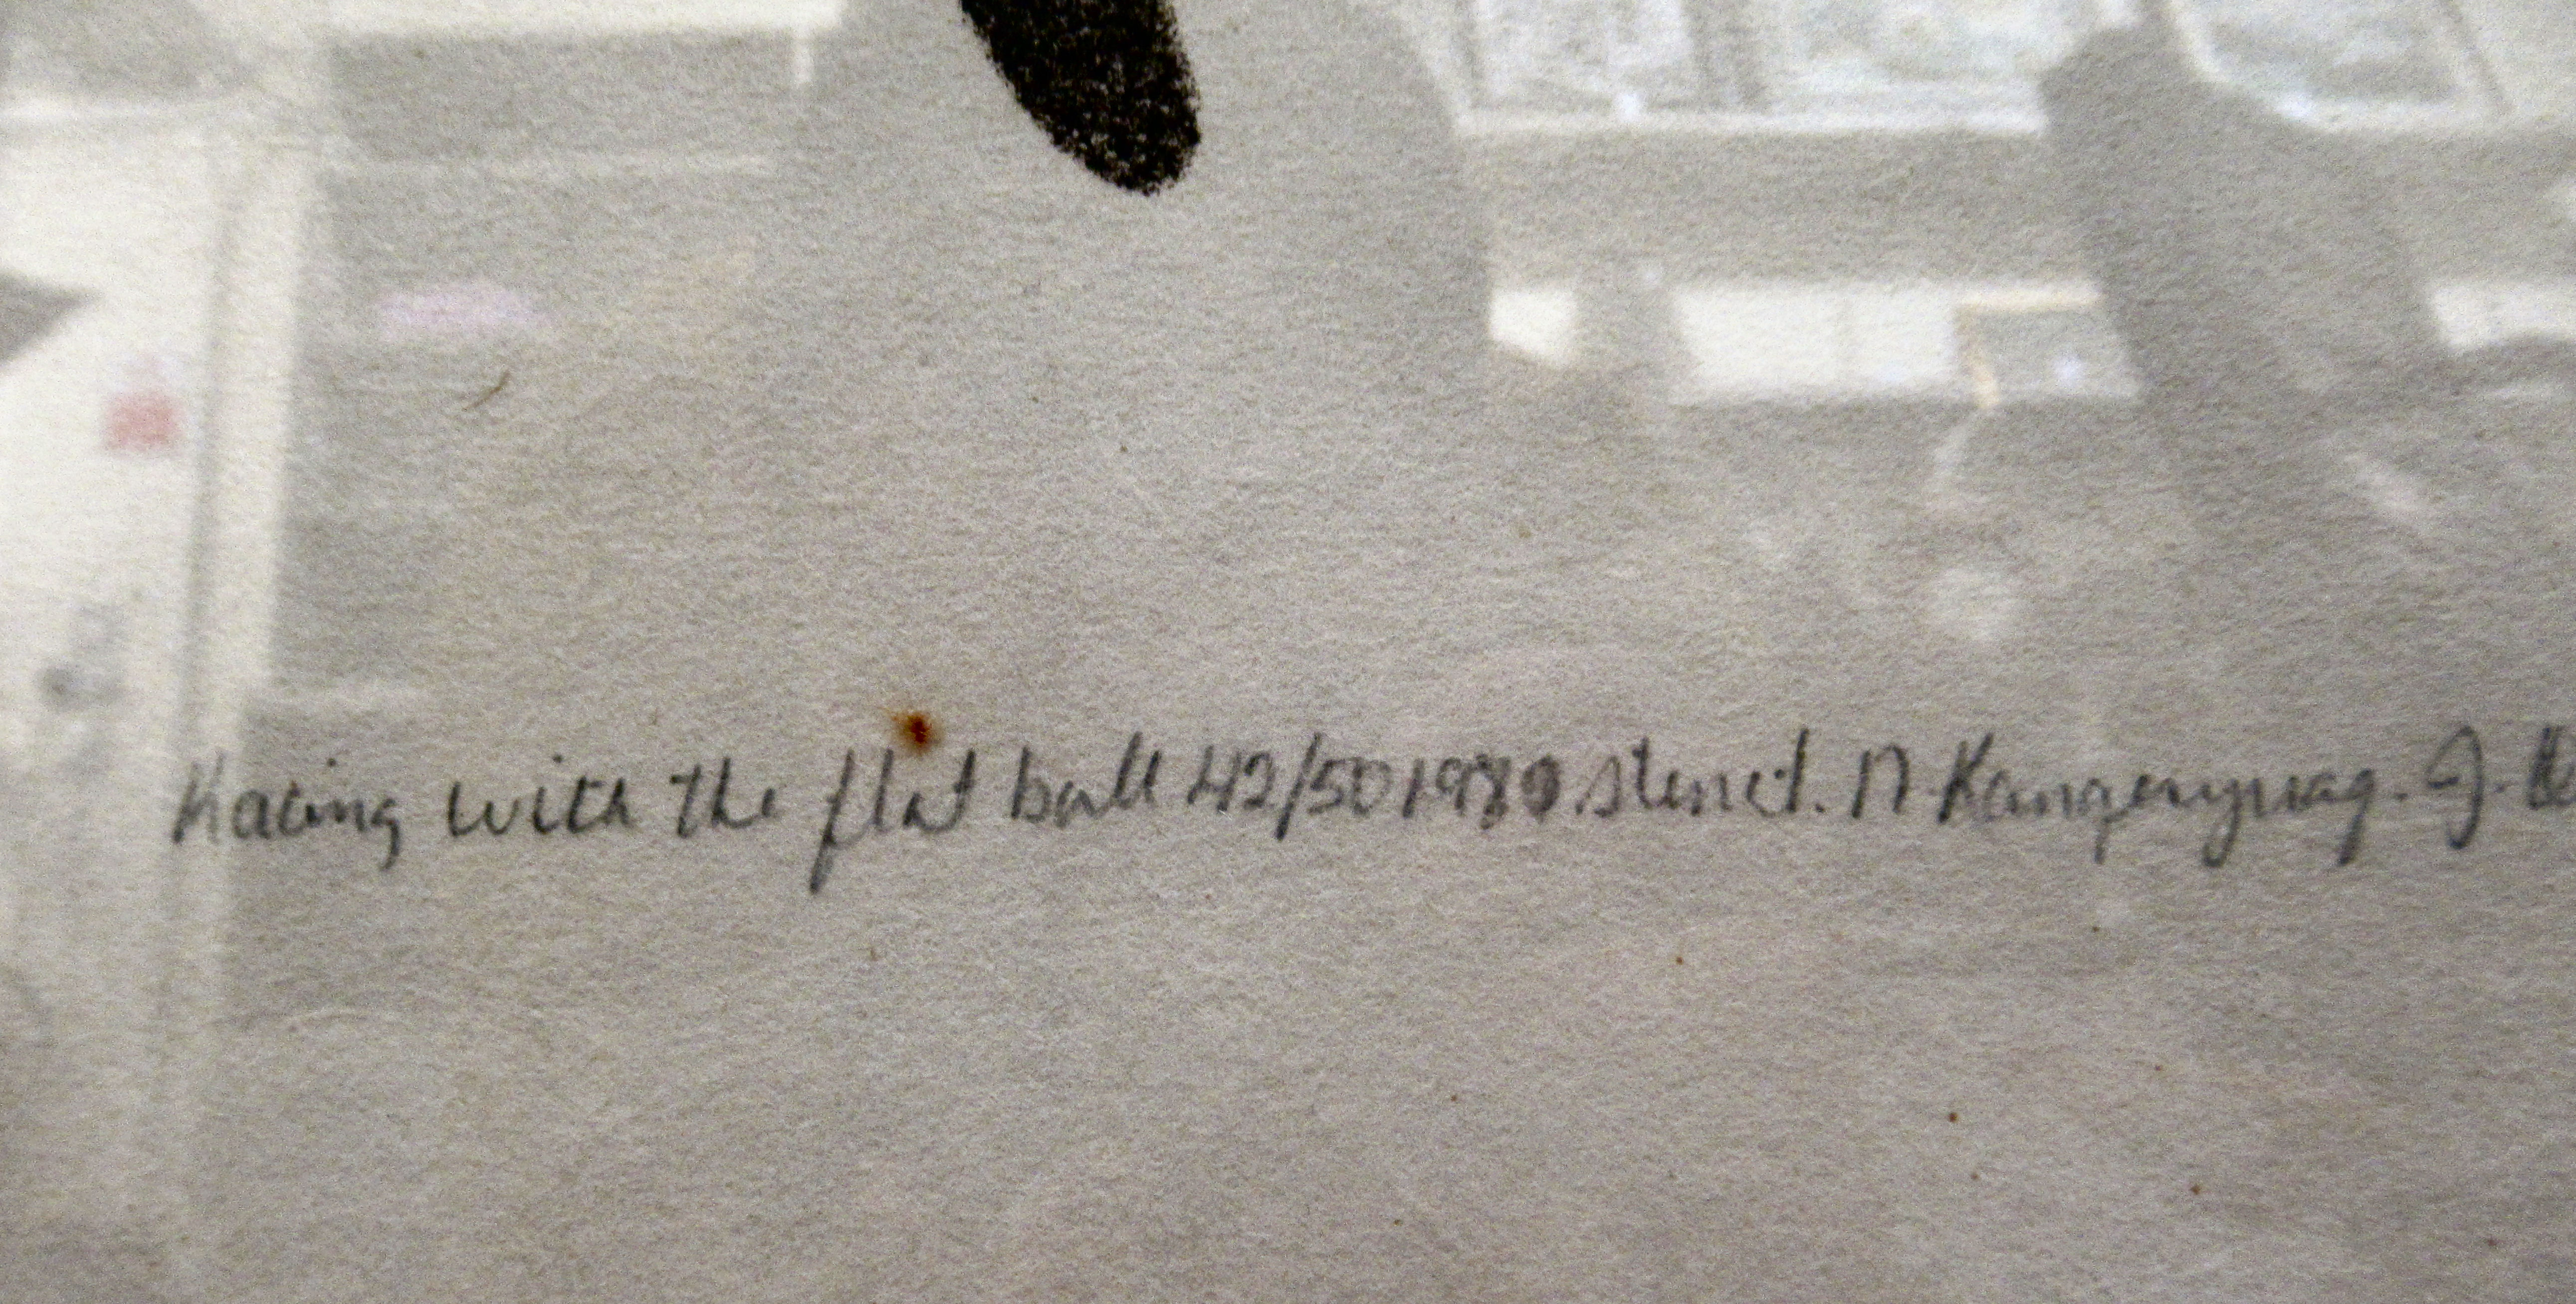 Racing with the flat ball 42/50 1980 stencil. N. Kanqeryuaq. J.